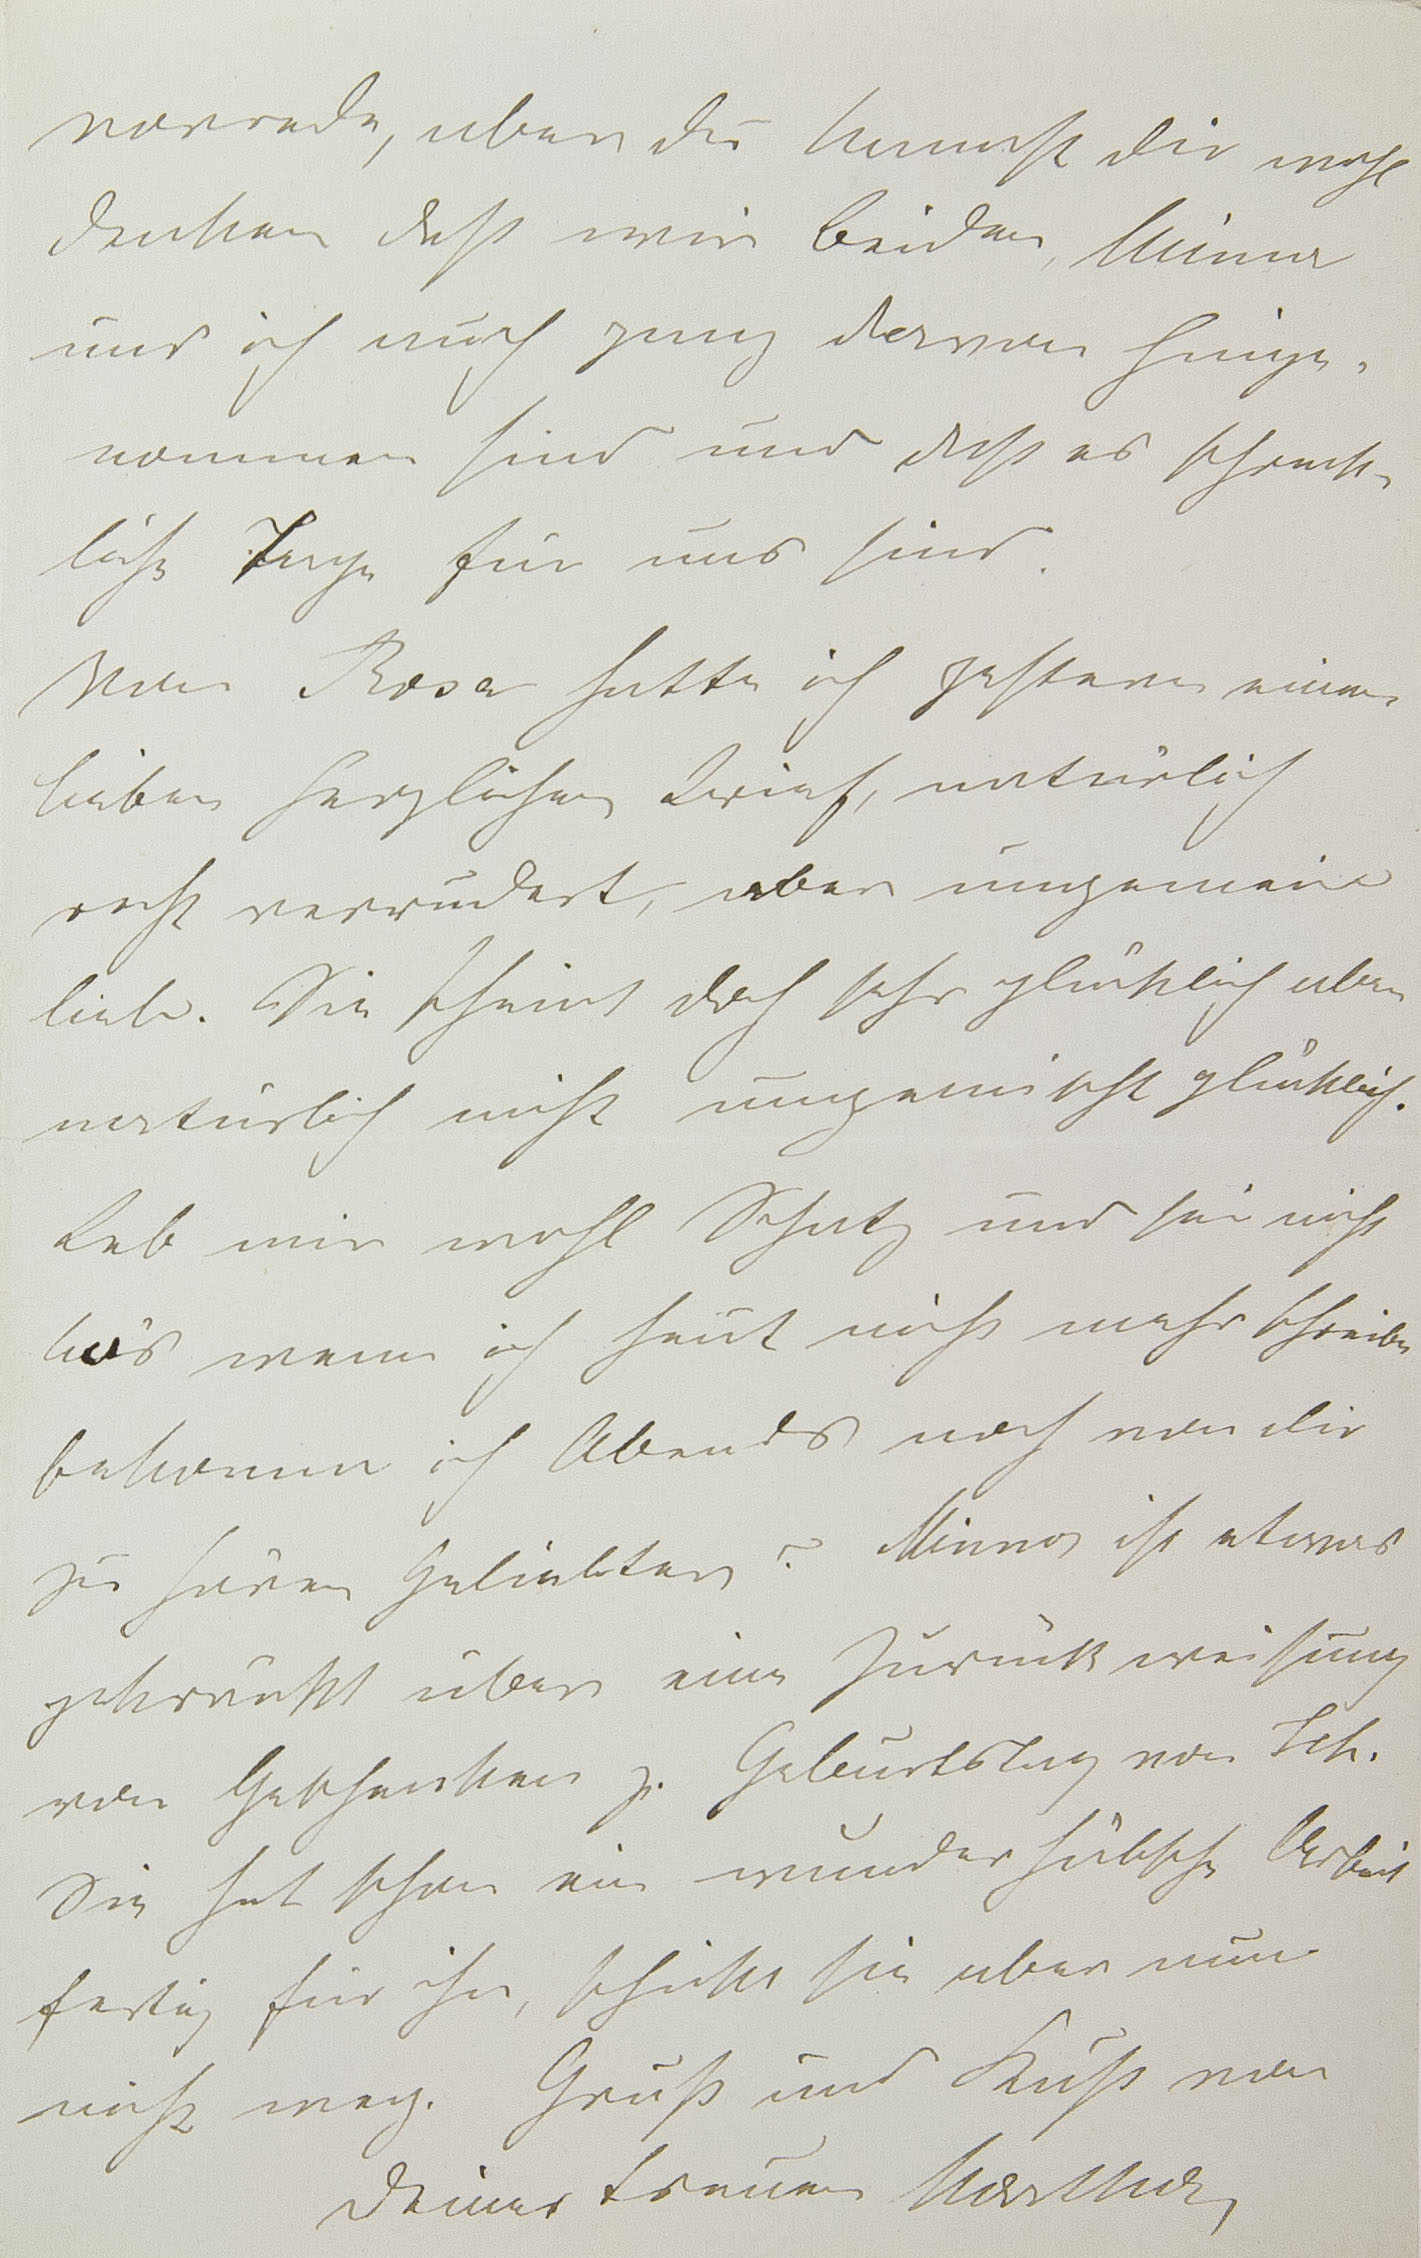 vorrede, aber du kannst dir wohl
denken daß wir beiden, Minna
und ich auch ganz davon hinge-
nommen sind und daß es schreck-
liche Tage für uns sind.
Von Rosa hatte ich gestern einen
lieben herzlichen Brief, natürlich
recht verrudert, aber ungemein
lieb. Sie scheint doch sehr glücklich aber
natürlich nicht ungemischt glücklich.
Leb mir wohl Schatz und sei nicht
bös wenn ich heut nicht mehr schreibe
bekomme ich Abends noch von dir
zu hören Geliebter? Minna ist etwas
gekränkt über eine Zurückweisung
von Geschenken z. Geburtstag von Sch.
Sie hat schon ein wunderhübsche Arbeit
fertig für ihn, schickt sie aber nun
nicht weg. Gruß und Kuß von
deiner treuen Martha